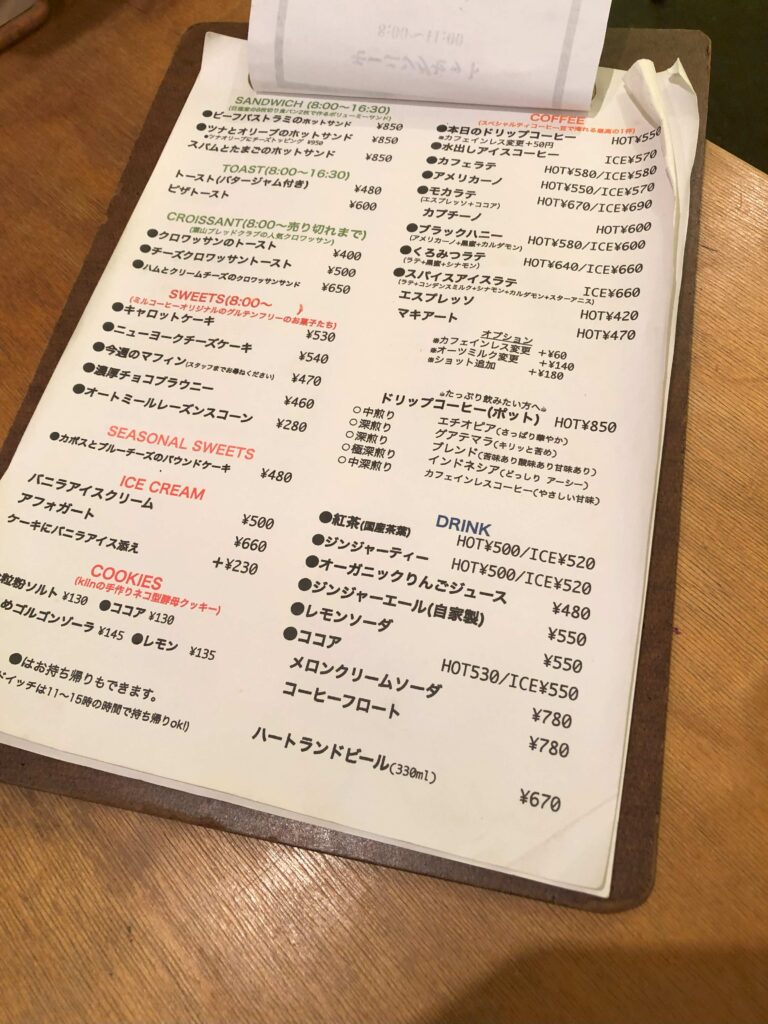 SANDWICH (8:00〜16:30)
●ビーフパストラミのホットサンド ¥850
●ツナとオリーブのホットサンド ¥850
※ツナオリーブにチーズトッピング ¥950
スパムとたまごのホットサンド ¥850
TOAST(8:00〜16:30)
トースト(バタージャム付き) ¥480
ピザトースト ¥600
CROISSANT(8:00〜売り切れまで)
(葉山ブレッドクラブの人気クロワッサン)
●クロワッサンのトースト ¥400
●チーズクロワッサントースト ¥500
●ハムとクリームチーズのクロワッサンサンド ¥650
SWEETS(8:00〜
(ミルコーヒーオリジナルのグルテンフリーのお菓子たち)
●キャロットケーキ ¥530
●ニューヨークチーズケーキ ¥540
●今週のマフィン(スタッフまでお尋ねください) ¥470
●濃厚チョコブラウニー ¥460
●オートミールレーズンスコーン ¥280
SEASONAL SWEETS
●カボスとブルーチーズのパウンドケーキ ¥480
ICE CREAM
バニラアイスクリーム ¥500
アフォガート ¥660
ケーキにバニラアイス添え +¥230
COOKIES
(kiinの手作りネコ型酵母クッキー)
粒粉ソルト ¥130 ●ココア ¥130
めゴルゴンゾーラ ¥145 ●レモン ¥135
●はお持ち帰りもできます。
ドイッチは11〜15時の時間で持ち帰りok!)
COFFEE
(スペシャルティコーヒー豆で淹れる最高の1杯)
●本日のドリップコーヒー HOT¥550
※カフェインレス変更+50円
●水出しアイスコーヒー ICE¥570
●カフェラテ HOT¥580/ICE¥580
●アメリカーノ HOT¥550/ICE¥570
●モカラテ HOT¥670/ICE¥690
(エスプレッソ+ココア)
カプチーノ HOT¥600
●ブラックハニー HOT¥580/ICE¥600
(アメリカーノ+黒蜜+カルダモン)
●くろみつラテ HOT¥640/ICE¥660
(ラテ+黒蜜+シナモン)
●スパイスアイスラテ ICE¥660
(ラテ+コンデンスミルク+シナモン+カルダモン+スターアニス)
エスプレッソ HOT¥420
マキアート HOT¥470
オプション
※カフェインレス変更 +¥60
※オーツミルク変更 +¥140
※ショット追加 +¥180
たっぷり飲みたい方へ
ドリップコーヒー(ポット) HOT¥850
○中煎り エチオピア(さっぱり華やか)
○深煎り グアテマラ(キリッと苦め)
○深煎り ブレンド(苦味あり酸味あり甘味あり)
○極深煎り インドネシア(どっしり アーシー)
○中深煎り カフェインレスコーヒー(やさしい甘味)
DRINK
●紅茶(国産茶葉) HOT¥500/ICE¥520
●ジンジャーティー HOT¥500/ICE¥520
●オーガニックりんごジュース ¥480
●ジンジャーエール(自家製) ¥550
●レモンソーダ ¥550
●ココア HOT530/ICE¥550
メロンクリームソーダ ¥780
コーヒーフロート ¥780
ハートランドビール(330ml) ¥670